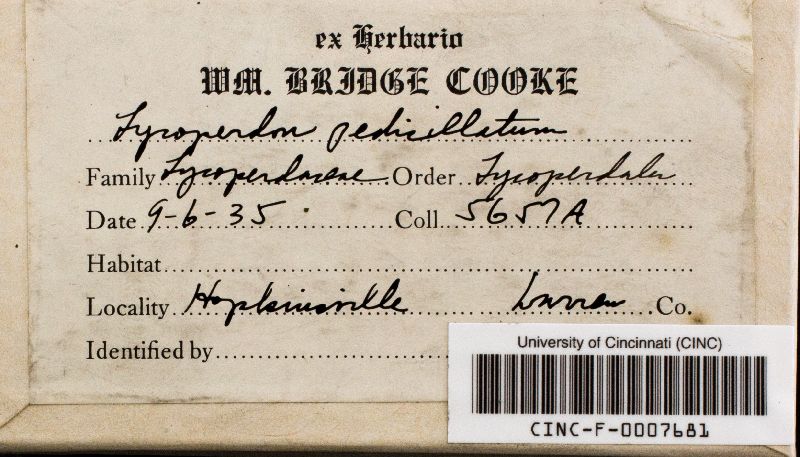 ex Herbario
WM. BRIDGE COOKE
Lycoperdon pedicillatum
Family Lycoperdaceae Order Lycoperdales
Date 9-6-35 Coll. 5657A
Habitat
Locality Hopkinsville Warren Co.
Identified by
University of Cincinnati (CINC)
CINC-F-0007681